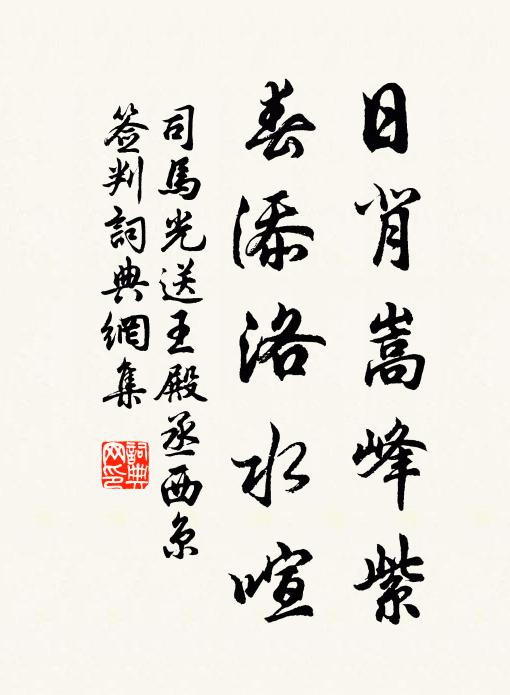 日背嵩峰紫
春添洛水喧
司馬光送王殿丞西京
簽判詞典網集
詞典網印